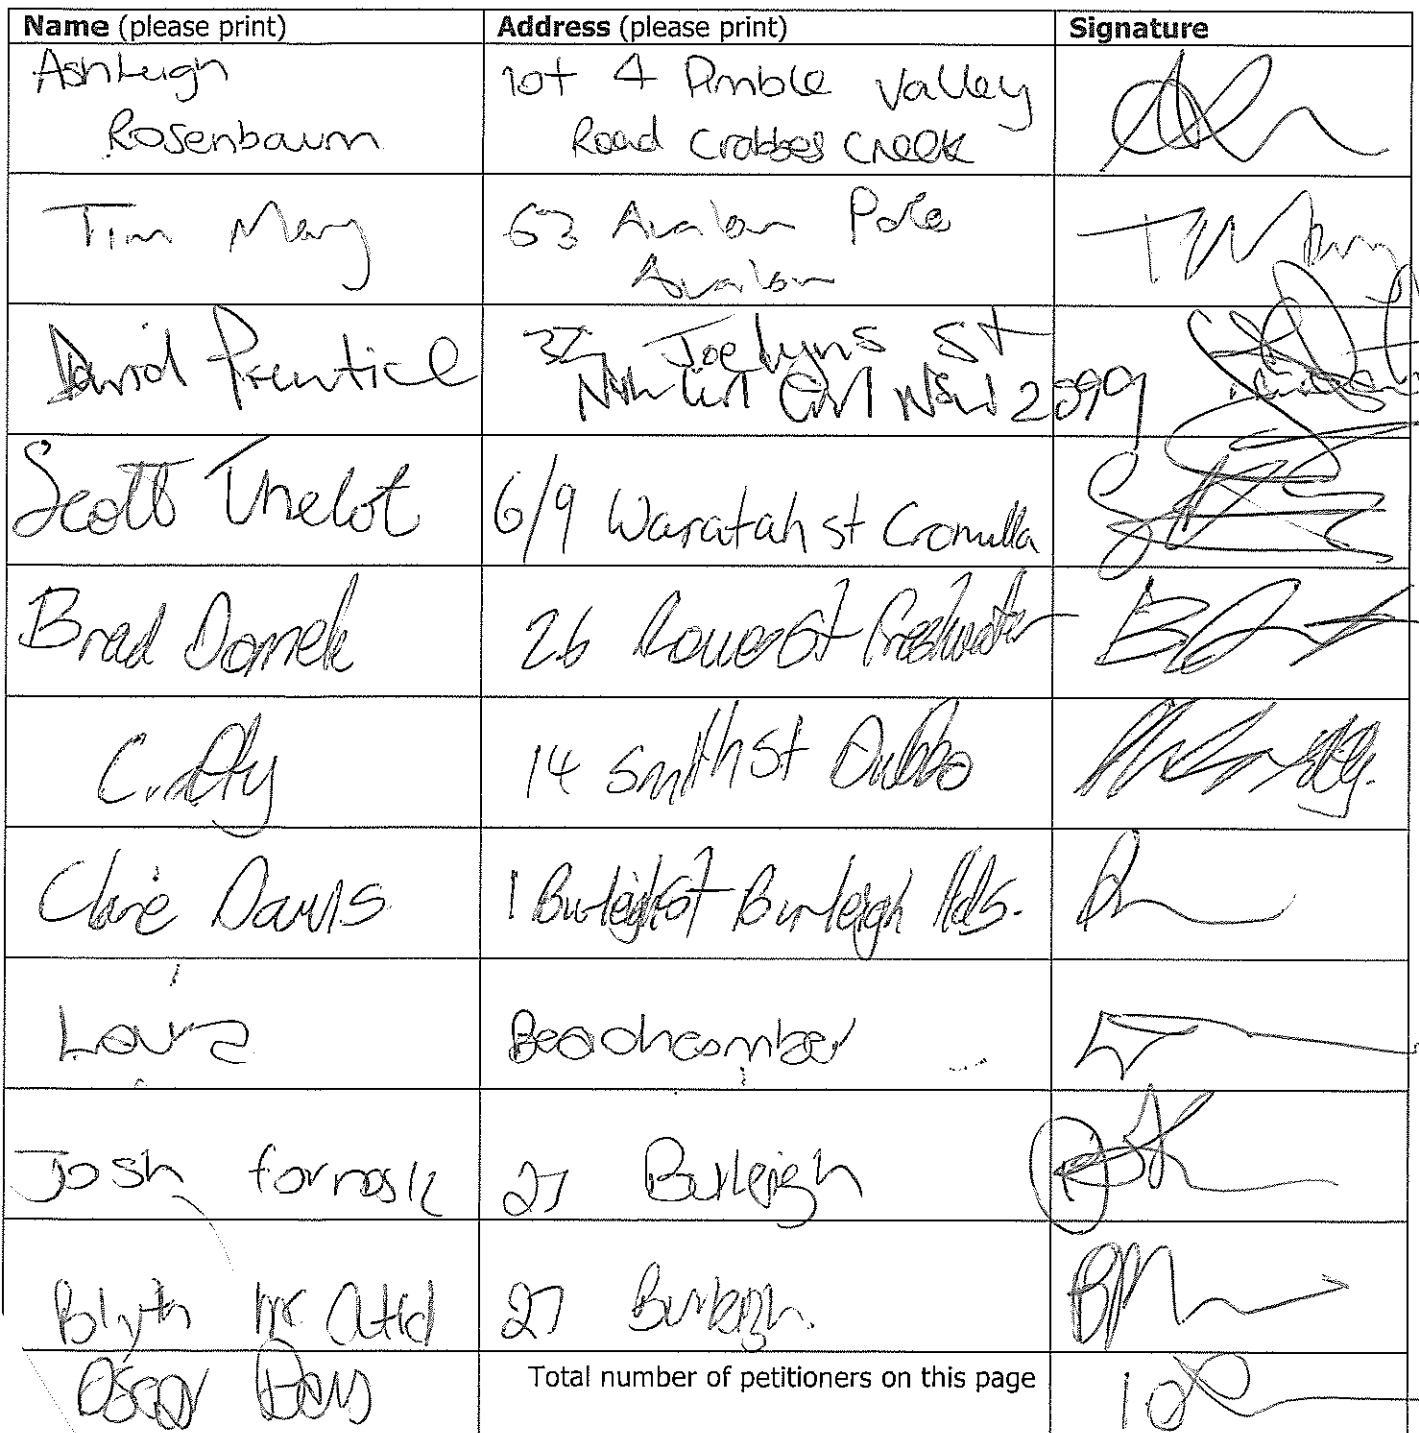 Name (please print) Address (please print) Signature
Ashleigh
Rosenbaum
lot 4 Pimble Valley
Road Crabbes Creek
Tim May
63 Avalon Pde
Avalon
David Prentice
32 Joclyns St
Nth Curl Curl NSW 2099
Scott Thelot
6/9 Waratah st Cronulla
Brad
26 Rowe St Freshwater
14 Smith St Dubbo
Clare Davis
1 Burleigh St Burleigh Hds.
Beachcomber
Josh
27 Burleigh
Blyth
27 Burleigh.
Oscar
Total number of petitioners on this page
10